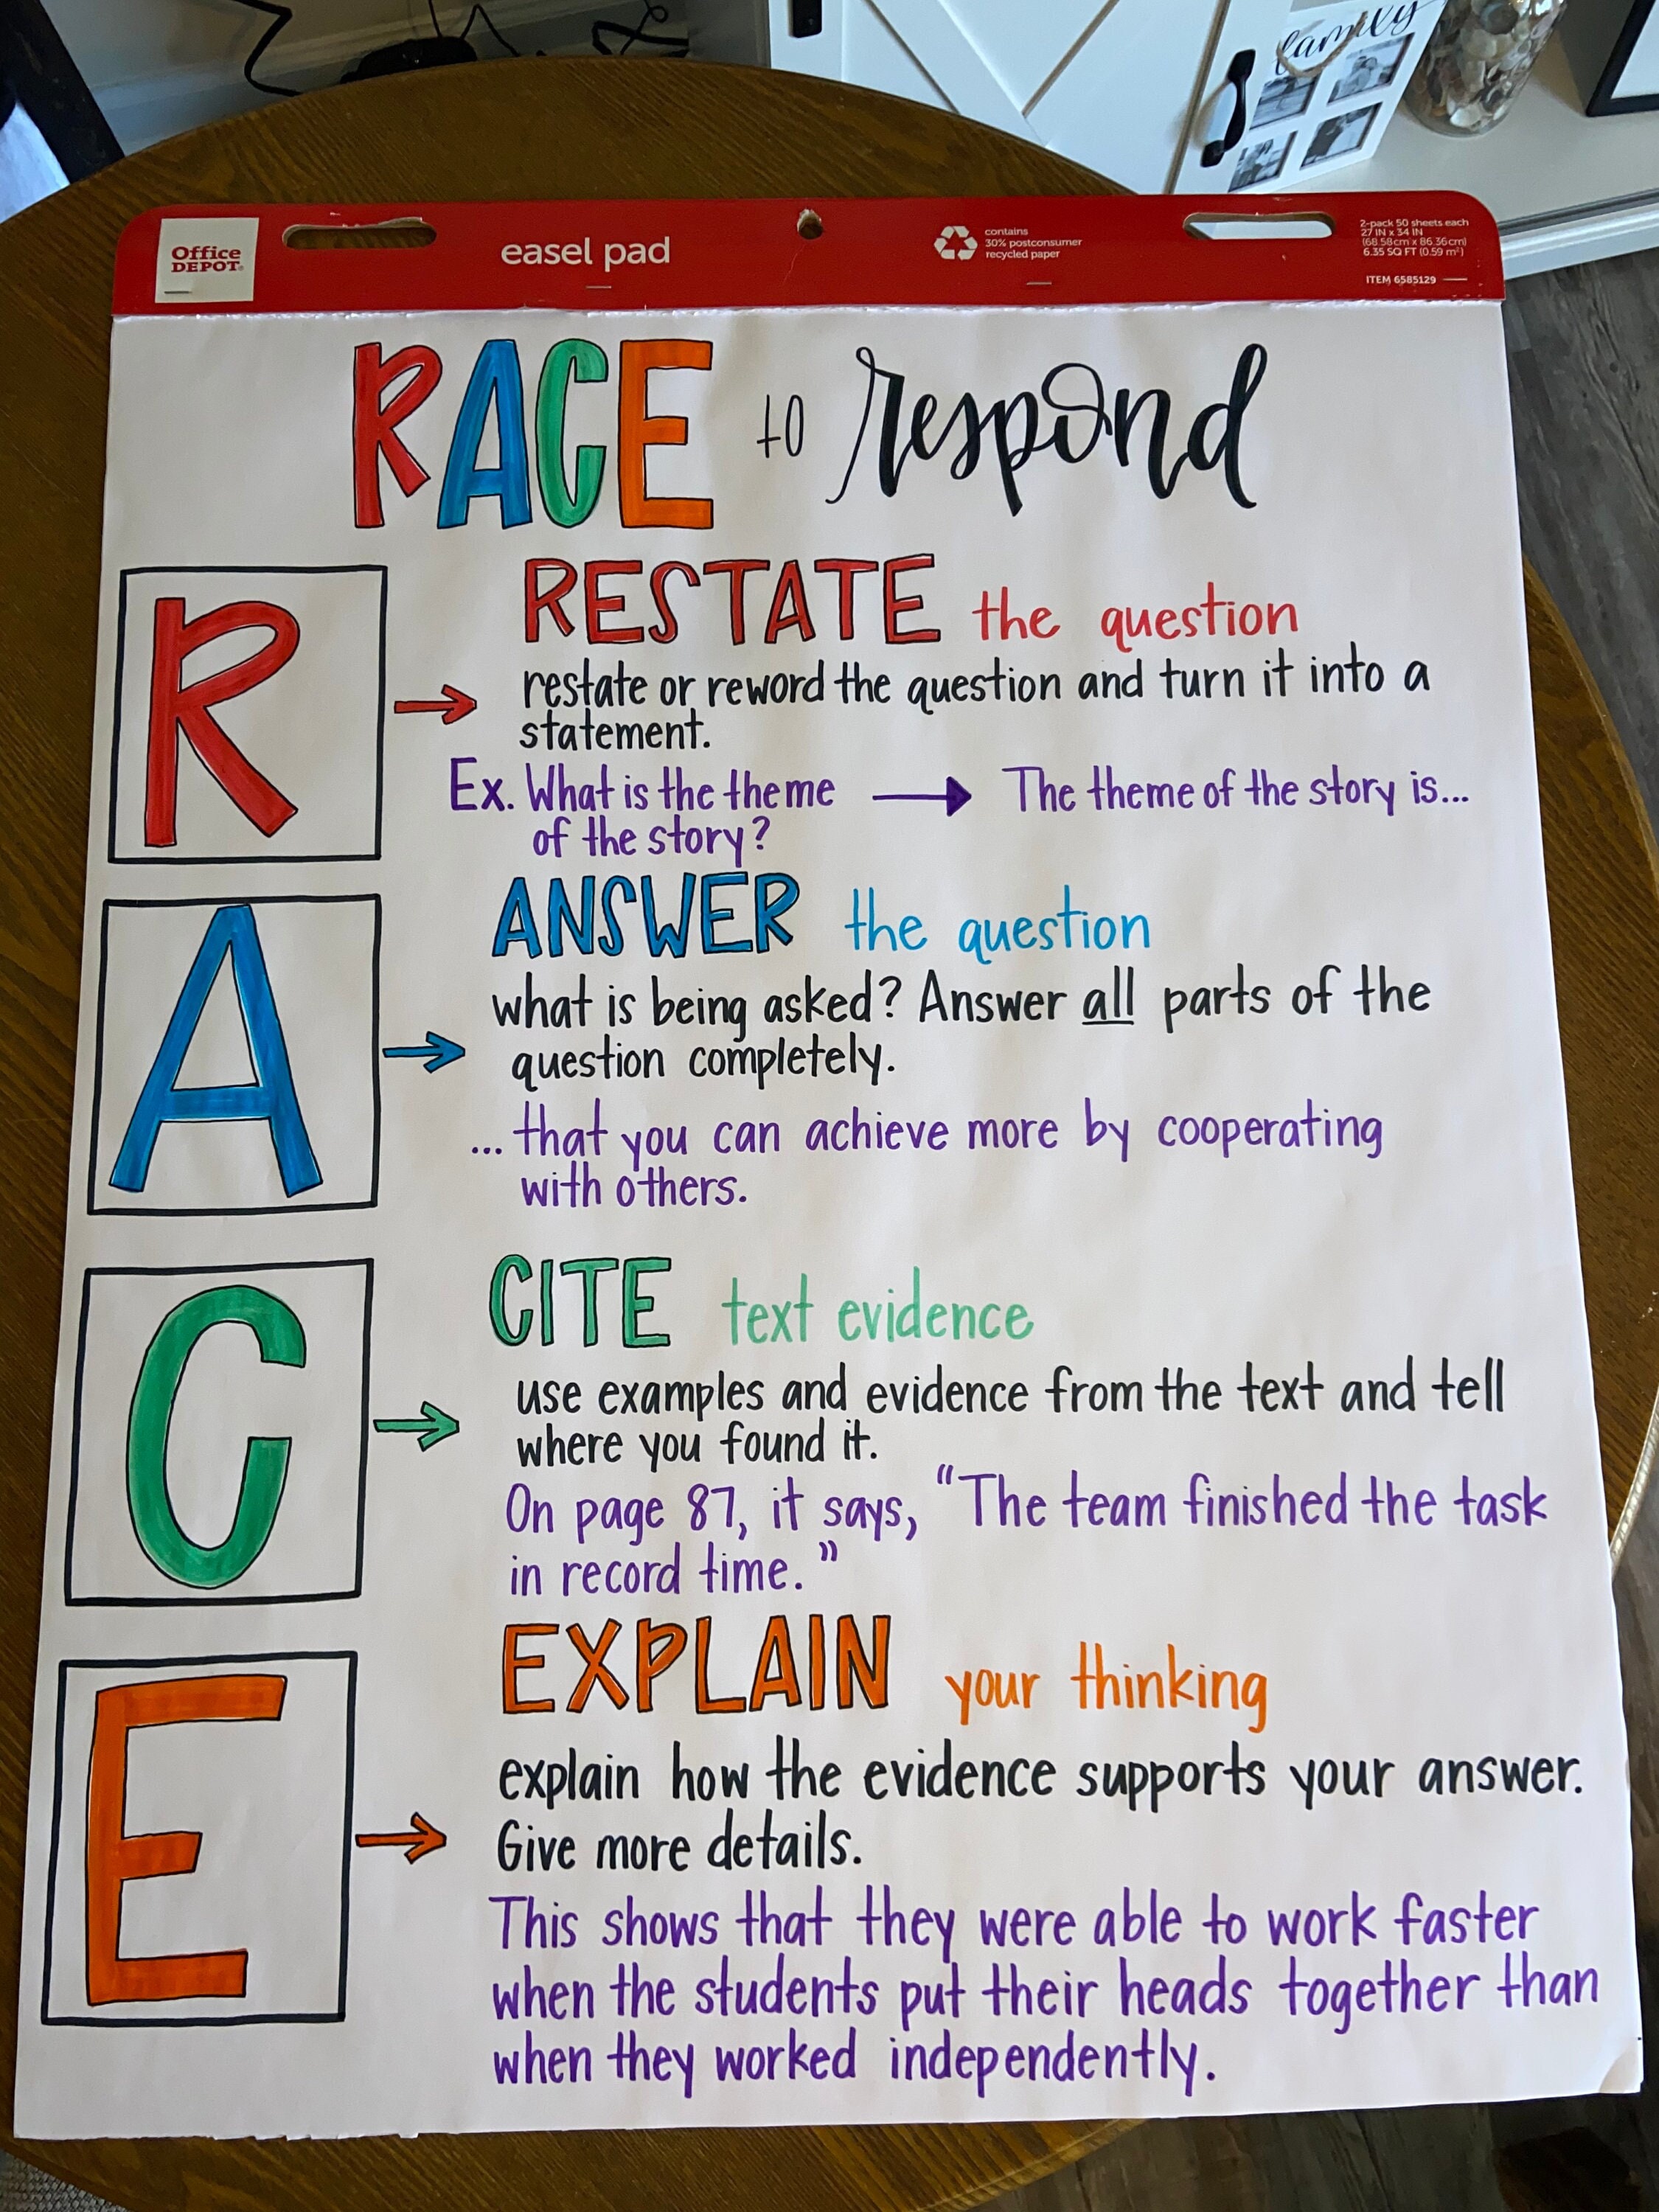 family
Office
DEPOT
easel pad
contains
30% postconsumer
recycled paper
2-pack 50 sheets each
27 IN x 34 IN
(68.58cm x 86.36cm)
6.35 SQ FT (0.59 m²)
ITEM 6585129
RACE to respond
R
RESTATE the question
restate or reword the question and turn it into a
statement.
Ex. What is the theme → The theme of the story is...
of the story?
A
ANSWER the question
what is being asked? Answer all parts of the
question completely.
... that you can achieve more by cooperating
with others.
C
CITE text evidence
use examples and evidence from the text and tell
where you found it.
On page 87, it says, "The team finished the task
in record time."
E
EXPLAIN your thinking
explain how the evidence supports your answer.
Give more details.
This shows that they were able to work faster
when the students put their heads together than
when they worked independently.